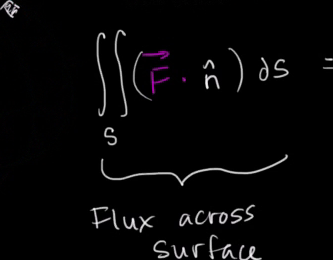 ∬ (F⃗ · n̂) ds =
S
Flux across
surface